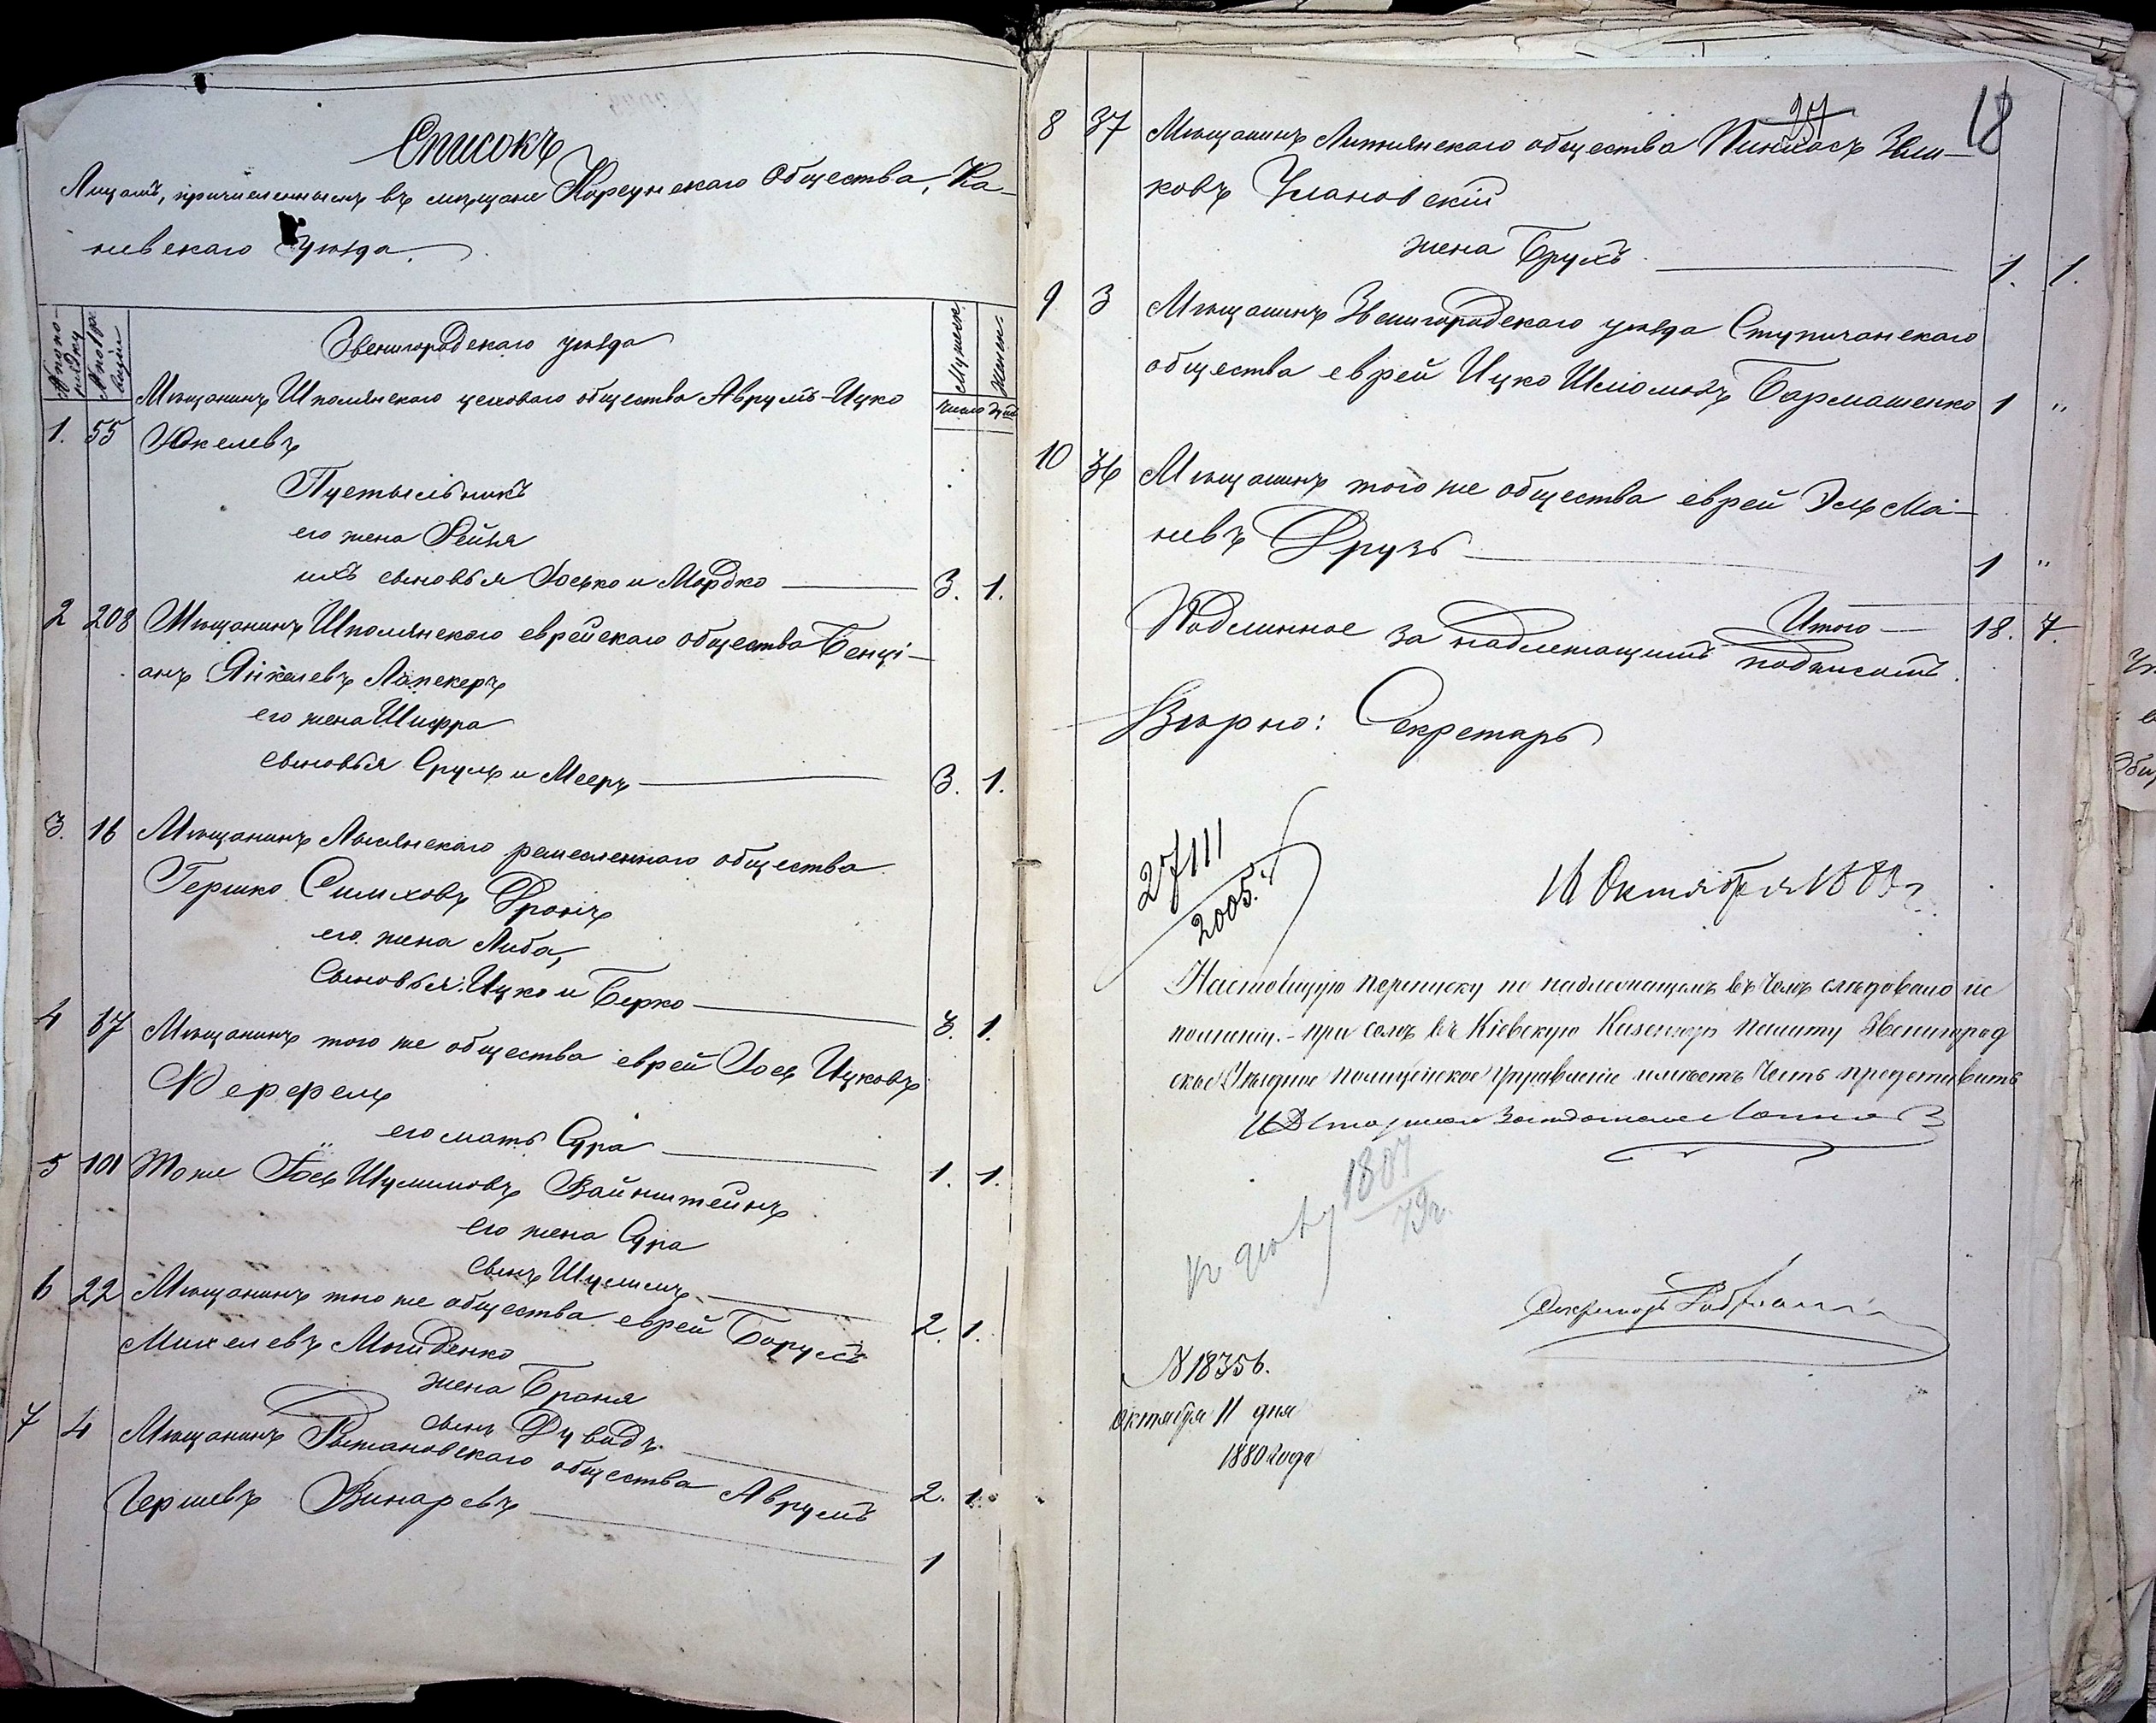 Списокъ
Лицамъ, причисленнымъ въ мѣщане Корсунскаго Общества, Ка-
невскаго уѣзда.
№ по по-
рядку
№ по ре-
визіи
Звенигородскаго уѣзда
Мужеск.
Женск.
Число душъ
Мѣщанинъ Шполянскаго цеховаго общества Аврумъ-Ицко
1. 55 Юкелевъ
Пустыльникъ
его жена Рейзя
ихъ сыновья Іосько и Мордко 3. 1.
2 208 Мѣщанинъ Шполянскаго еврейскаго общества Бенці-
анъ Янкелевъ Лапекеръ
его жена Шифра
сыновья Сруль и Мееръ 3. 1.
3. 16 Мѣщанинъ Лысянскаго ремесленнаго общества
Гершко Симховъ Фронъ
его жена Либа,
сыновья: Ицко и Берко 3. 1.
4 87 Мѣщанинъ того же общества еврей Іось Ицковъ
Ферфель
его мать Сура 1. 1.
5 101 Тоже Іось Шулимовъ Вайнштейнъ
его жена Сура
сынъ Шулимъ 2. 1.
6 22 Мѣщанинъ того же общества еврей Борухъ
Михелевъ Могиденко
жена Броня
сынъ Дувидъ 2. 1.
7 4 Мѣщанинъ Рыжановскаго общества Аврумъ
Гершевъ Винаревъ 1
18
27
8 37 Мѣщанинъ Литянскаго общества Пинхасъ Зели-
ковъ Улановскій
жена Брухъ 1. 1.
9 3 Мѣщанинъ Звенигородскаго уѣзда Ступичанскаго
общества еврей Ицко Шліомовъ Бармашенко 1 "
10 36 Мѣщанинъ того же общества еврей Эль Ма-
невъ Друзь 1 "
Итого 18. 7.
Подлинное за надлежащимъ подписомъ.
Вѣрно: Секретарь
27111
2005.
16 Октября 1880 г.
Настоящую переписку по надлежащемъ въ чемъ слѣдовало ис
полненіи.- при семъ въ Кіевскую Казенную Палату Звенигород
ское Уѣздное полицейское управленіе имѣетъ честь представить
И Д Старшаго Засѣдателя
к дѣлу 1807
79 г.
Секретарь
№ 18356.
Октября 11 дня
1880 года